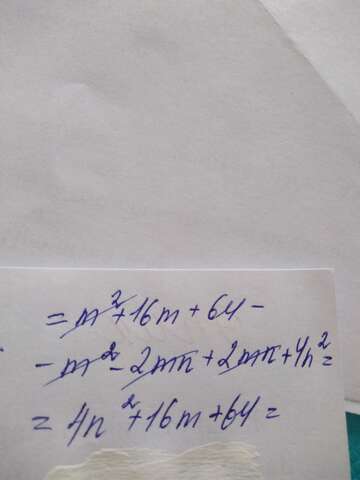 = m²+16m+64-
- m²-2mn+2mn+4n²=
= 4n²+16m+64=